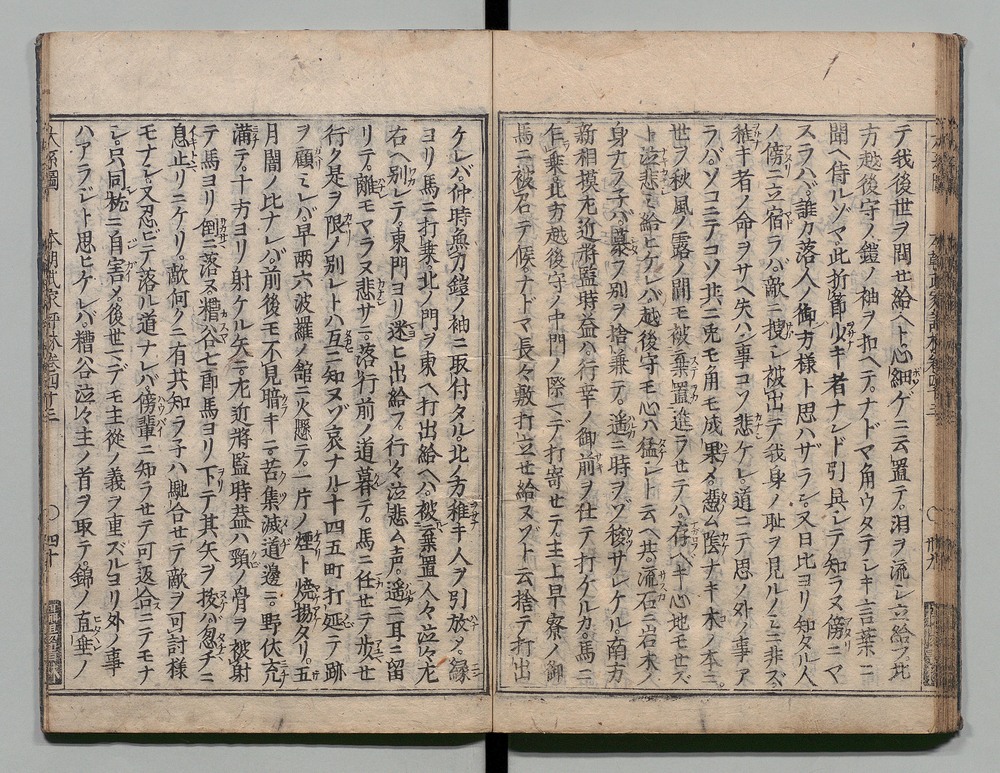 テ我後世ヲ問セ給ヘト心細ゲニ云置テ。泪ヲ流シ立給フ北
方越後守ノ鎧ノ袖ヲ扣ヘテ。ナドマ角ウタテシキ言葉ニ
聞ヘ侍ルゾマ此折節少キ者ナンド引具シテ知ラヌ傍ニマ
スラハバ。誰カ落人ノ御方様ト思ハザラン。又日比ヨリ知タル人
ノ傍ニ立宿ラバ。敵ニ捜シ被出テ我身ノ耻ヲ見ルノミニ非ズ。
稚キ者ノ命ヲサヘ失ハン事コソ悲ケレ。道ニテ思ノ外ノ事ア
ラバ。ソコニテコソ共ニ兎モ角モ成果メ。憑ム陰ナキ木ノ本ニ。
世ヲ秋風ノ露ノ間モ被棄置進ラセテハ。存ヘキ心地モセズ
ト泣悲ミ給ヒケレバ越後守モ心ハ猛シト云ヘ共。流石ニ岩木ノ
身ナラネバ慕フ別ヲ捨兼テ。遥ニ時ヲゾ移サレケル。南方
新相摸左近将監時益ハ。行幸ノ御前ヲ仕テ打ケルカ。馬ニ
乍乗北方越後守ノ中門ノ際マデ打寄セテ。主上早寮ノ御
馬ニ被召テ候。ナドマ長々敷打立セ給ヌゾト云捨テ打出
ケレバ。仲時無力鎧ノ袖ニ取付タル。北ノ方稚キ人ヲ引放シ。縁
ヨリ馬ニ打乗。北ノ門ヲ東ヘ打出給ヘハ。被棄置人々泣々左
右ヘ別レテ。東門ヨリ迷ヒ出給フ。行々泣悲ム声。遥ニ耳ニ留
リテ。離モマラヌ悲サニ。落行前ノ道暮テ。馬ニ任セテ歩セ
行ク是ヲ限ノ別レトハ互ニ知ヌゾ哀ナル十四五町打延テ跡
ヲ顧ミレバ。早両六波羅ノ館ニ火懸テ。一片ノ煙ト焼揚タリ。五
月闇ノ比ナレバ。前後モ不見暗キニ。苦集滅道ノ邊ニ。野伏充
満テ。十方ヨリ射ケル矢ニ。左近将監時益ハ頸ノ骨ヲ被射
テ馬ヨリ倒ニ落ヌ糟谷七郎馬ヨリ下テ其矢ヲ抜バ忽チニ
息止リニケリ。敵何クニ有共知ラネハ馳合セテ敵ヲ可討様
モナシ。又忍ビテ落ル道ナレバ傍輩ニ知ラセテ可返合ニテモナ
シ。只同枕ニ自害メ。後世マデモ主従ノ義ヲ重ズルヨリ外ノ事
ハアラジト思ヒケレバ。糟谷泣々主ノ首ヲ取テ。錦ノ直垂ノ